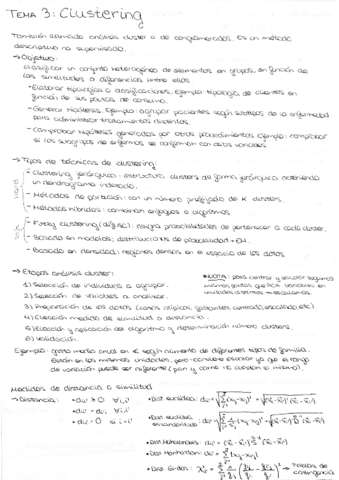 TEMA 3: Clustering
También llamado análisis cluster o de conglomerados. Es un método
descriptivo no supervisado.
→ Objetivo:
clasificar un conjunto heterogéneo de elementos en grupos, en función de
las similitudes o diferencias entre ellos
- Elaborar tipologías o clasificaciones. Ejemplo: tipología de clientes en
función de sus pautas de consumo.
- Generar hipótesis. Ejemplo: agrupar pacientes según subtipos de la enfermedad
para administrar tratamientos distintos.
- Comprobar hipótesis generadas por otros procedimientos. Ejemplo: comprobar
si los subgrupos de enfermos se conforman con otras variables
→ Tipos de técnicas de clustering:
- Clustering jerárquico: estructura clusters de forma jerárquica obteniendo
un dendrograma indexado.
- Métodos de partición: con un número prefijado de K clusters.
- Métodos híbridos: combinan enfoques o algoritmos
- Fuzzy clustering (difuso): asigna probabilidades de pertenecer a cada cluster.
- Basado en modelos: distribuciones de probabilidad + EM.
- Basado en densidad: regiones densas en el espacio de los datos.
→ Etapas análisis cluster:
1) Selección de individuos a agrupar.
2) Selección de variables a analizar.
3) Preparación de los datos (casos atípicos, faltantes, centrado, escalado, etc)
4) Elección medida de similitud o distancia.
5) Elección y aplicación del algoritmo y determinación número clusters.
6) Validación.
NOTA: para centrar y escalar seguimos
mismas pautas que PCA. Variables en
unidades distintas → escalamos.
Ejemplo: gasto medio anual en € según número de diferentes tipos de familia.
Están en las mismas unidades, pero conviene escalar ya que el rango
de variación puede ser diferente (pan y carne no cuestan lo mismo).
Medidas de distancia o similitud
→ Distancia:
• dii' ≥ 0 ∀i,i'
• dii' = di'i ∀i,i'
• dii' = 0 si i=i'
• Dist. euclídea:
• Dist. euclídea
• Dist. Mahalanobis:
• Dist. Manhattan:
→ Tablas de
contingencia